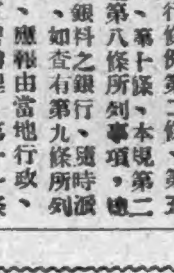 行條例第二條、第五
、第十條、本規第二
第八條所列事項，總
銀料之銀行、隨時派
、如查有第九條所列
、應報由當地行政、